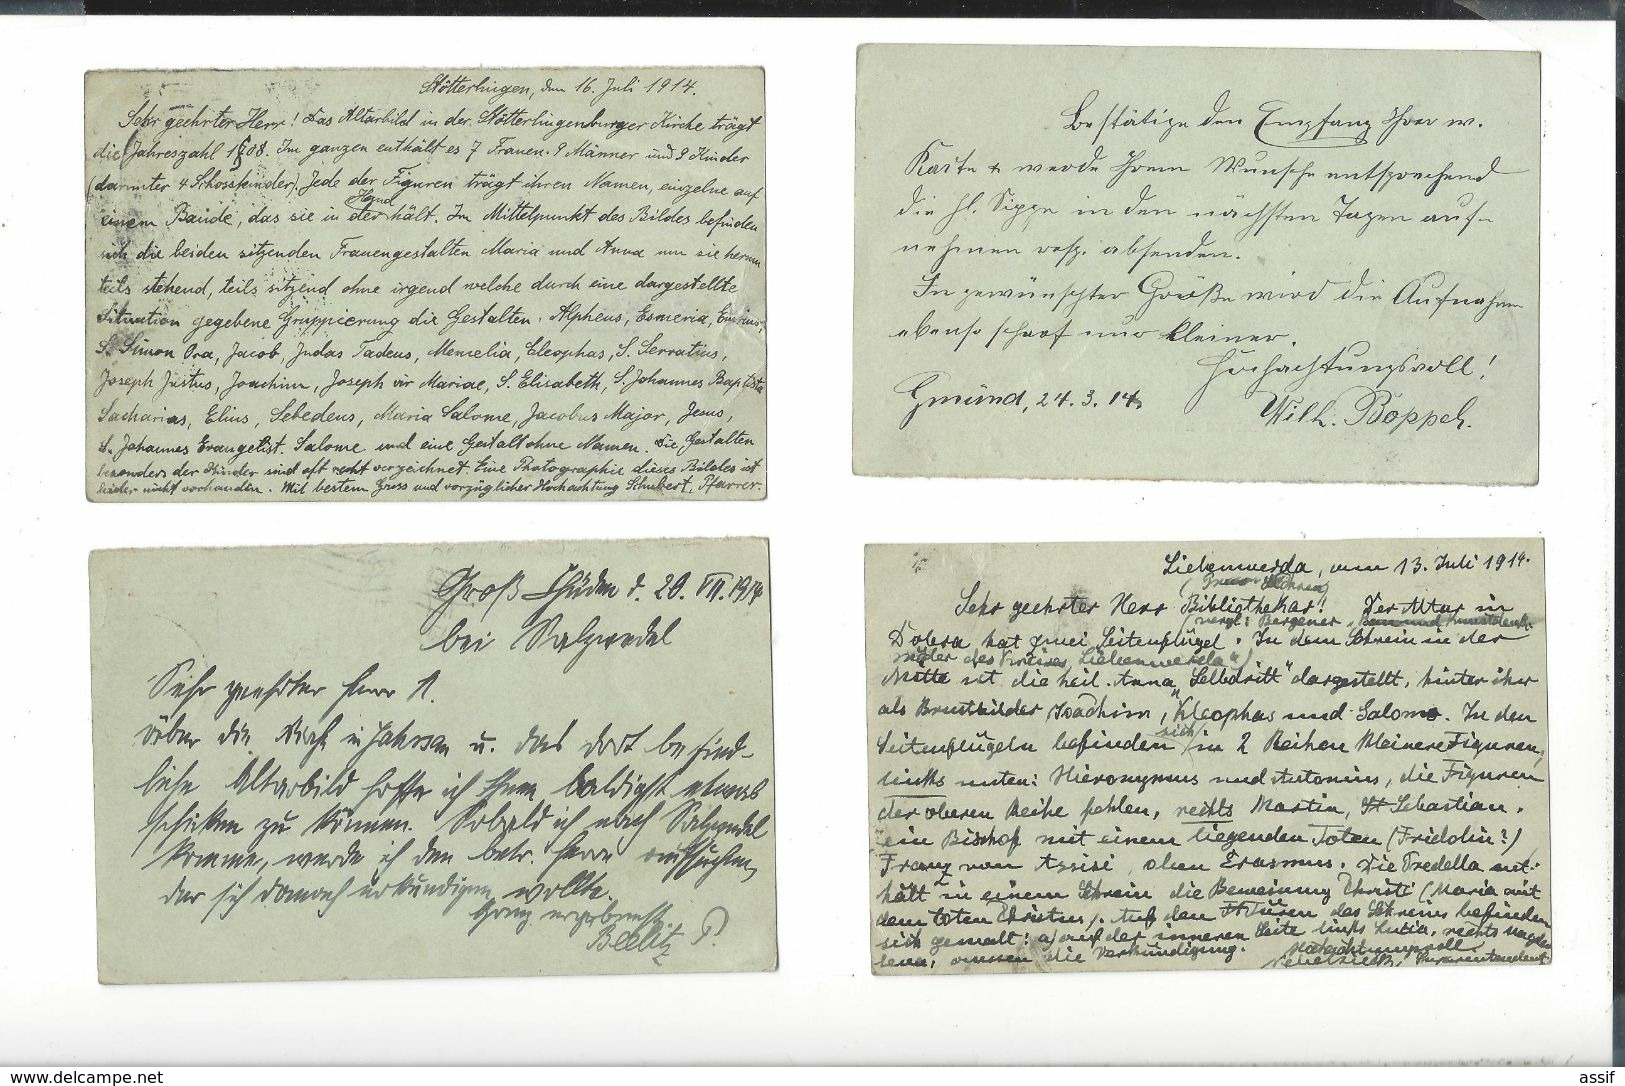 Stötterlingen, den 16. Juli 1914.
Sehr geehrter Herr! Das Altarbild in der Stötterlingenburger Kirche trägt
die Jahreszahl 1508. Im ganzen enthält es 7 Frauen. 9 Männer und 9 Kinder
(darunter 4 Schosskinder). Jede der Figuren trägt ihren Namen, einzelne auf
einem Bande, das sie in der Hand hält. Im Mittelpunkt des Bildes befinden
sich die beiden sitzenden Frauengestalten Maria und Anna um sie herum
teils stehend, teils sitzend ohne irgend welche durch eine dargestellte
Situation gegebene Gruppierung die Gestalten. Alpheus, Esmeria,
S. Simon Ora, Jacob, Judas Tadeus, Memelia, Cleophas, S. Serratius,
Joseph Justus, Joachim, Joseph vir Mariae, S. Elisabeth, S. Johannes Baptista
Sacharias, Elius, Sebedeus, Maria Salome, Jacobus Major, Jesus,
S. Johannes Evangelist. Salome und eine Gestalt ohne Namen. Die Gestalten
besonders der Kinder sind oft recht verzeichnet. Eine Photographie dieses Bildes ist
leider nicht vorhanden. Mit bestem Gruss und vorzüglicher Hochachtung Schubert, Pfarrer.
Bestätige den Empfang Ihrer w.
Karte & werde Ihrem Wunsche entsprechend
die hl. Sippe in den nächsten Tagen auf-
nehmen resp. absenden.
In gewünschter Größe wird die Aufnahme
ebenso scharf nur kleiner.
Hochachtungsvoll!
Gmünd, 24. 3. 14. Wilh. Boppel.
Groß Chüden d. 20. VII. 1914
bei Salzwedel
Sehr geehrter Herr
Über die Kirche in Jahrsau u. das dort befind-
liche Altarbild hoffe ich Ihnen baldigst etwas
schicken zu können. Sobald ich nach Salzwedel
komme, werde ich den betr. Herrn aufsuchen,
der sich danach erkundigen wollte.
Ganz ergebenst
Beelitz P.
Liebenwerda, am 13. Juli 1914.
Sehr geehrter Herr Bibliothekar! Der Altar in
(vergl: Bergner Bau und Kunstdenk-
Dobra hat zwei Seitenflügel. In dem Schrein in der
mäler des Kreises Liebenwerda")
Mitte ist die heil. Anna „Selbdritt" dargestellt, hinter ihr
als Brustbilder Joachim, Kleophas und Salomo. In den
Seitenflügeln befinden sich in 2 Reihen kleinere Figuren,
links unten: Hieronymus und Antonius, die Figuren
der oberen Reihe fehlen, rechts Martin, St Sebastian.
ein Bischof mit einem liegenden Toten (Fridolin?)
Franz von Assisi, oben Erasmus. Die Predella ent-
hält in einem Schrein die Beweinung Christi (Maria mit
dem toten Christus). Auf den Türen des Schreins befinden
sich gemalt: a) auf der inneren Seite links Lucia, rechts Magda
lena, aussen die Verkündigung. Hochachtungsvoll
Superintendent
assif
www.delcampe.net